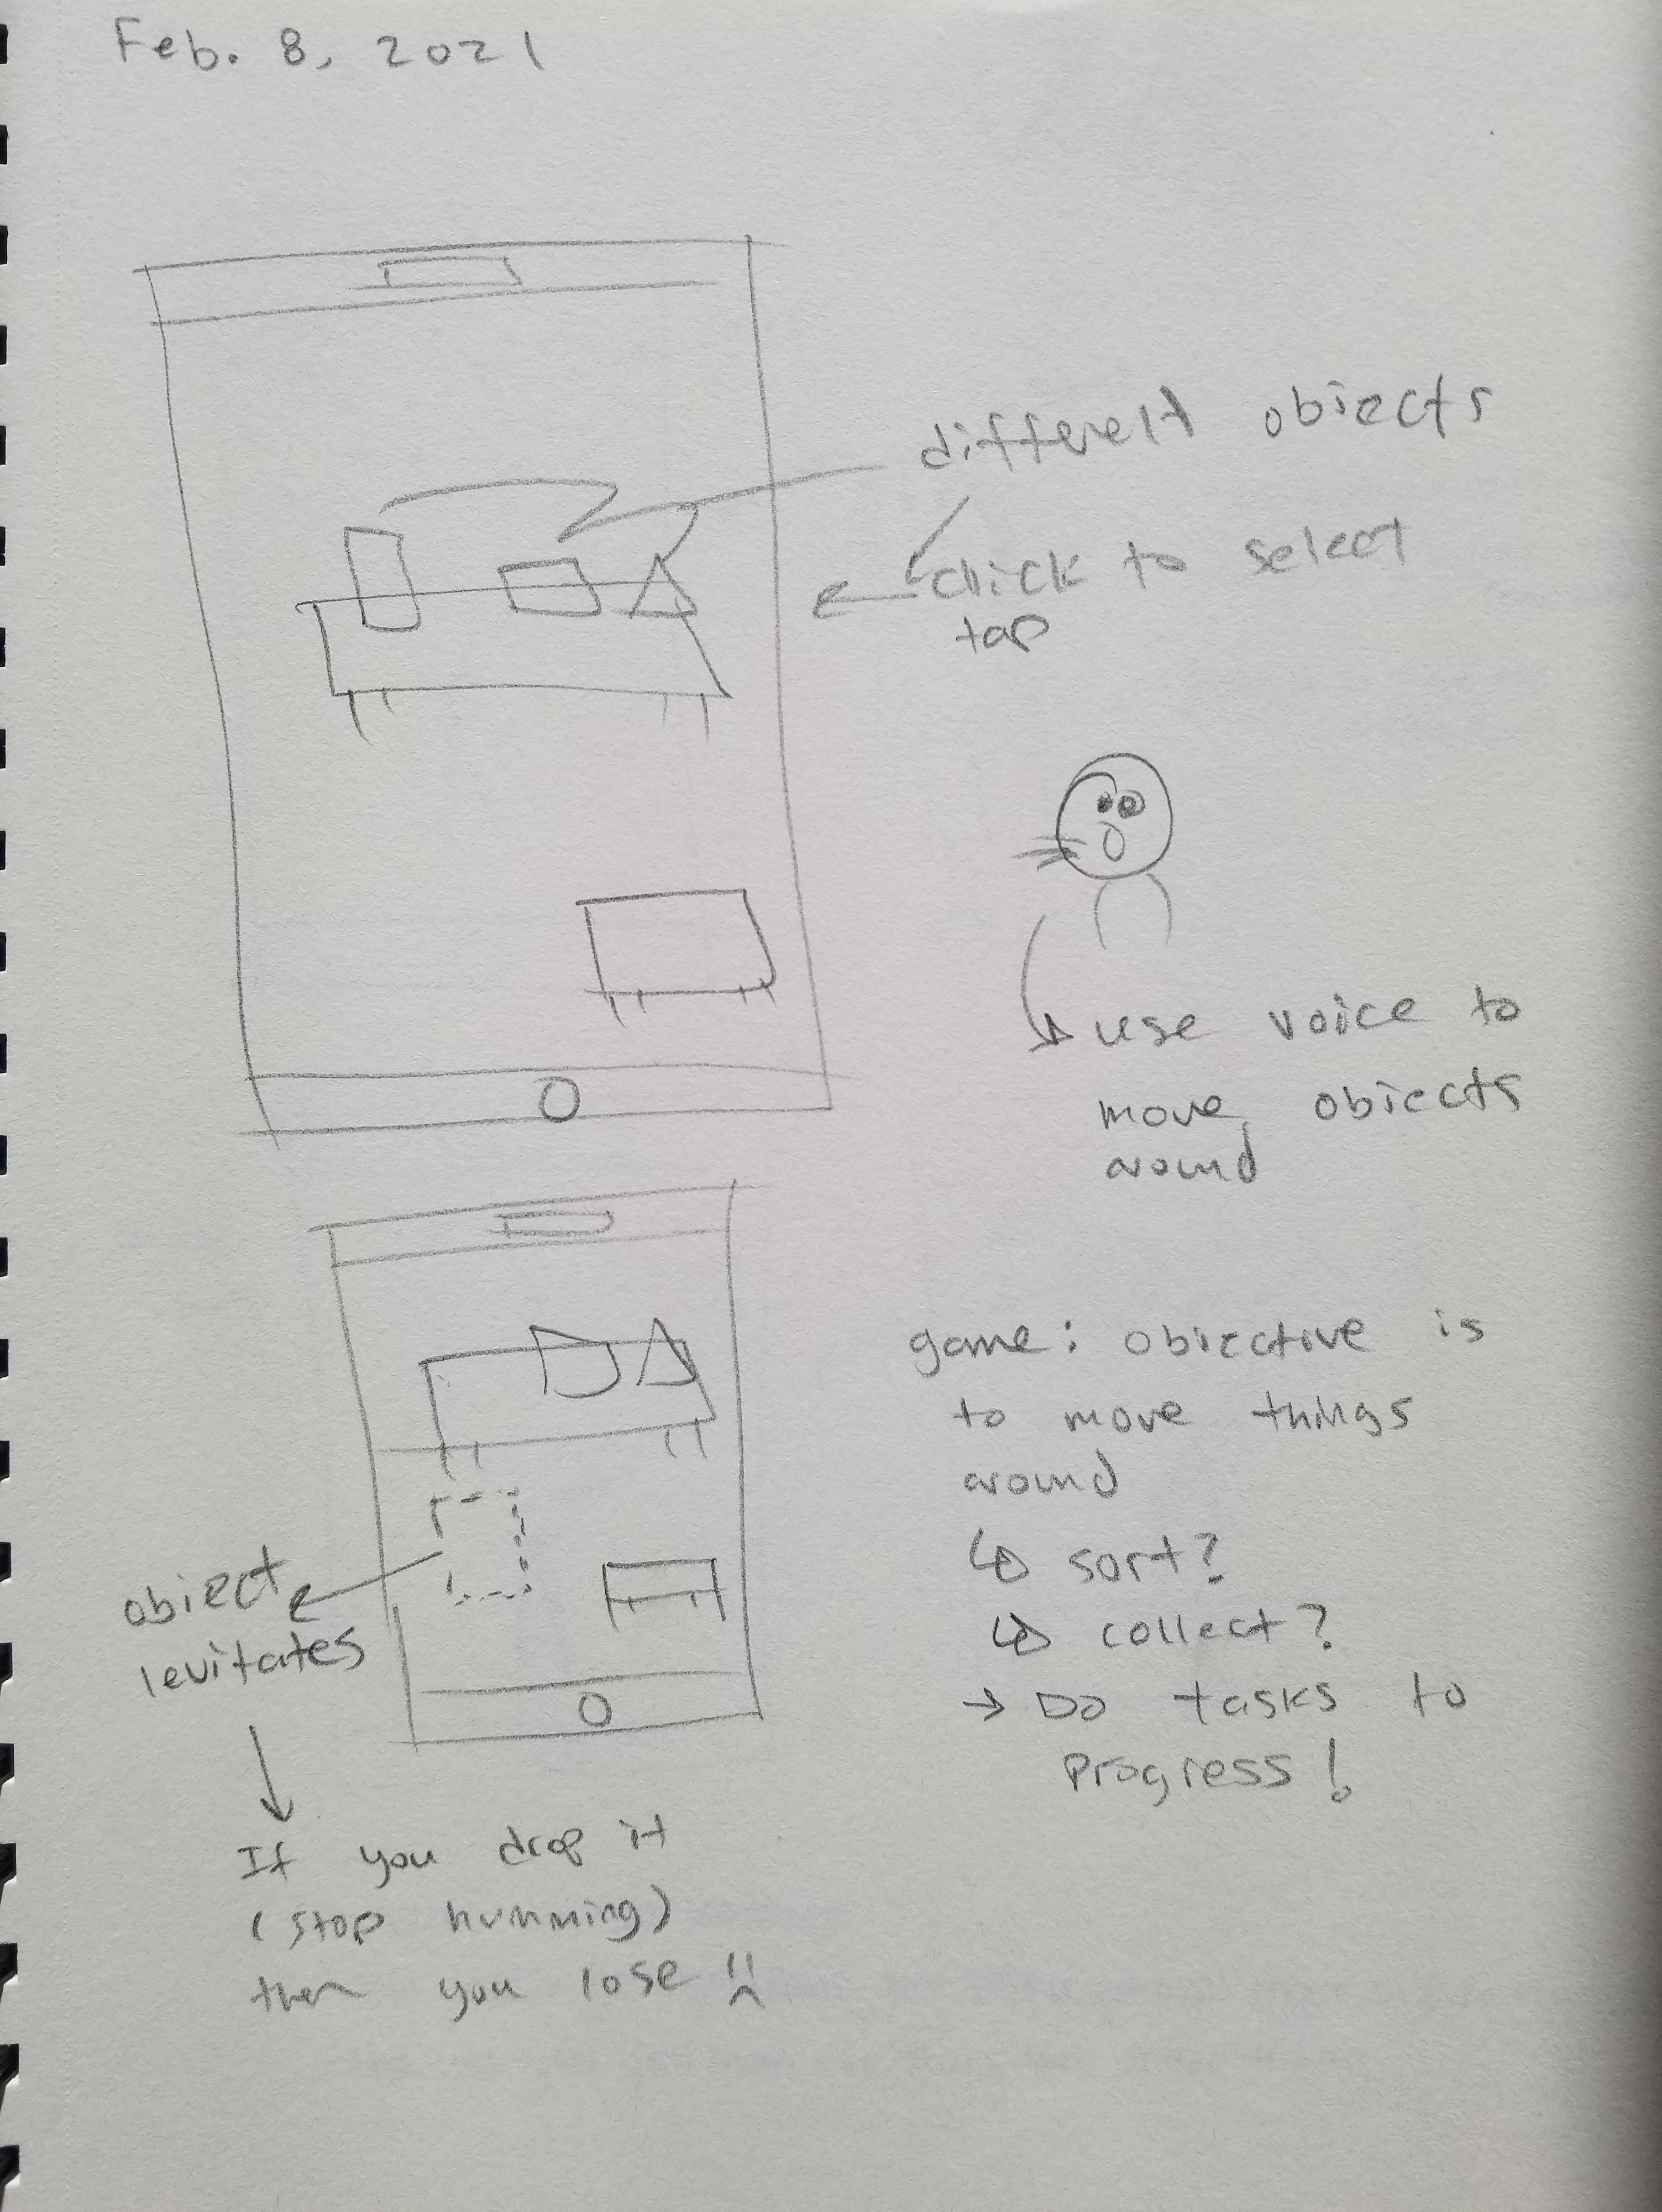 Feb. 8, 2021
different objects
click to select
tap
use voice to
move objects
around
game: objective is
to move things
around
sort?
collect?
→ Do tasks to
progress!
object
levitates
If you drop it
(stop humming)
then you lose